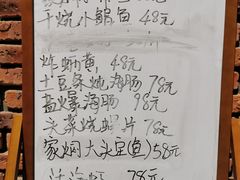 干烧小鲳鱼 48元
炸蛎黄 48元
土豆条炖海肠 78元
盐爆海肠 98元
头菜烧螺片 78元
家焖大头豆(鱼) 58元
78元